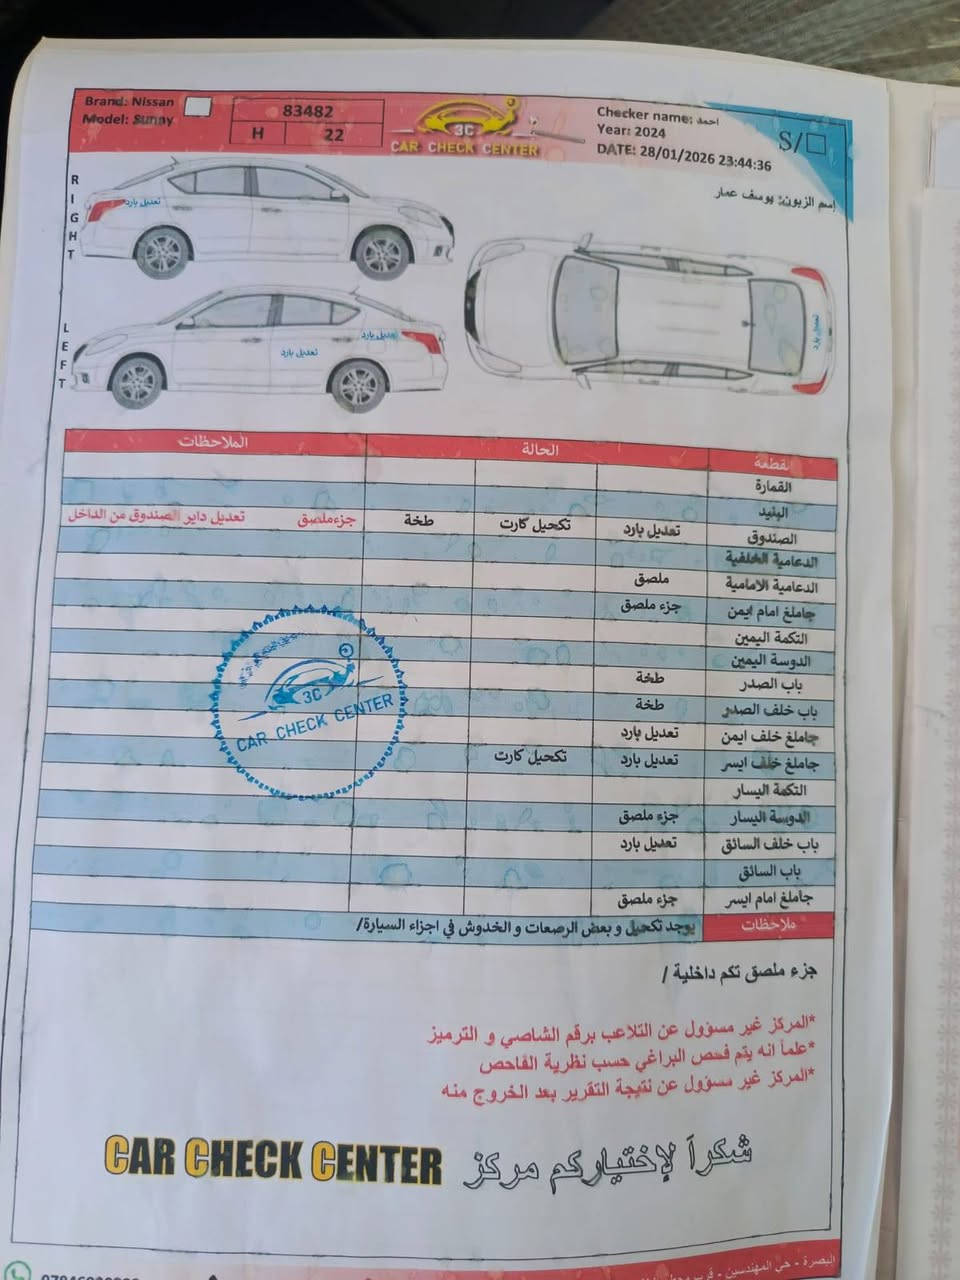 Brand: Nissan
Model: Sunny
83482
H 22
3C
CAR CHECK CENTER
Checker name: احمد
Year: 2024
DATE: 28/01/2026 23:44:36
S/
إسم الزبون: يوسف عمار
RIGHT
تعديل بارد
LEFT
تعديل بارد
تعديل بارد
تعديل بارد
القطعة الحالة الملاحظات
القمارة
البنيد
الصندوق تعديل بارد تكحيل كارت طخة جزءملصق تعديل داير الصندوق من الداخل
الدعامية الخلفية
الدعامية الامامية ملصق
جاملغ امام ايمن جزء ملصق
التكمة اليمين
الدوسة اليمين
باب الصدر طخة
باب خلف الصدر طخة
جاملغ خلف ايمن تعديل بارد
جاملغ خلف ايسر تعديل بارد تكحيل كارت
التكمة اليسار
الدوسة اليسار جزء ملصق
باب خلف السائق تعديل بارد
باب السائق
جاملغ امام ايسر جزء ملصق
ملاحظات يوجد تكحيل و بعض الرصعات و الخدوش في اجزاء السيارة/
3C
CAR CHECK CENTER
جزء ملصق تكم داخلية /
*المركز غير مسؤول عن التلاعب برقم الشاصي و الترميز
*علماً انه يتم فحص البراغي حسب نظرية الفاحص
*المركز غير مسؤول عن نتيجة التقرير بعد الخروج منه
شكراً لإختياركم مركز CAR CHECK CENTER
البصرة - حي المهندسين - قرب